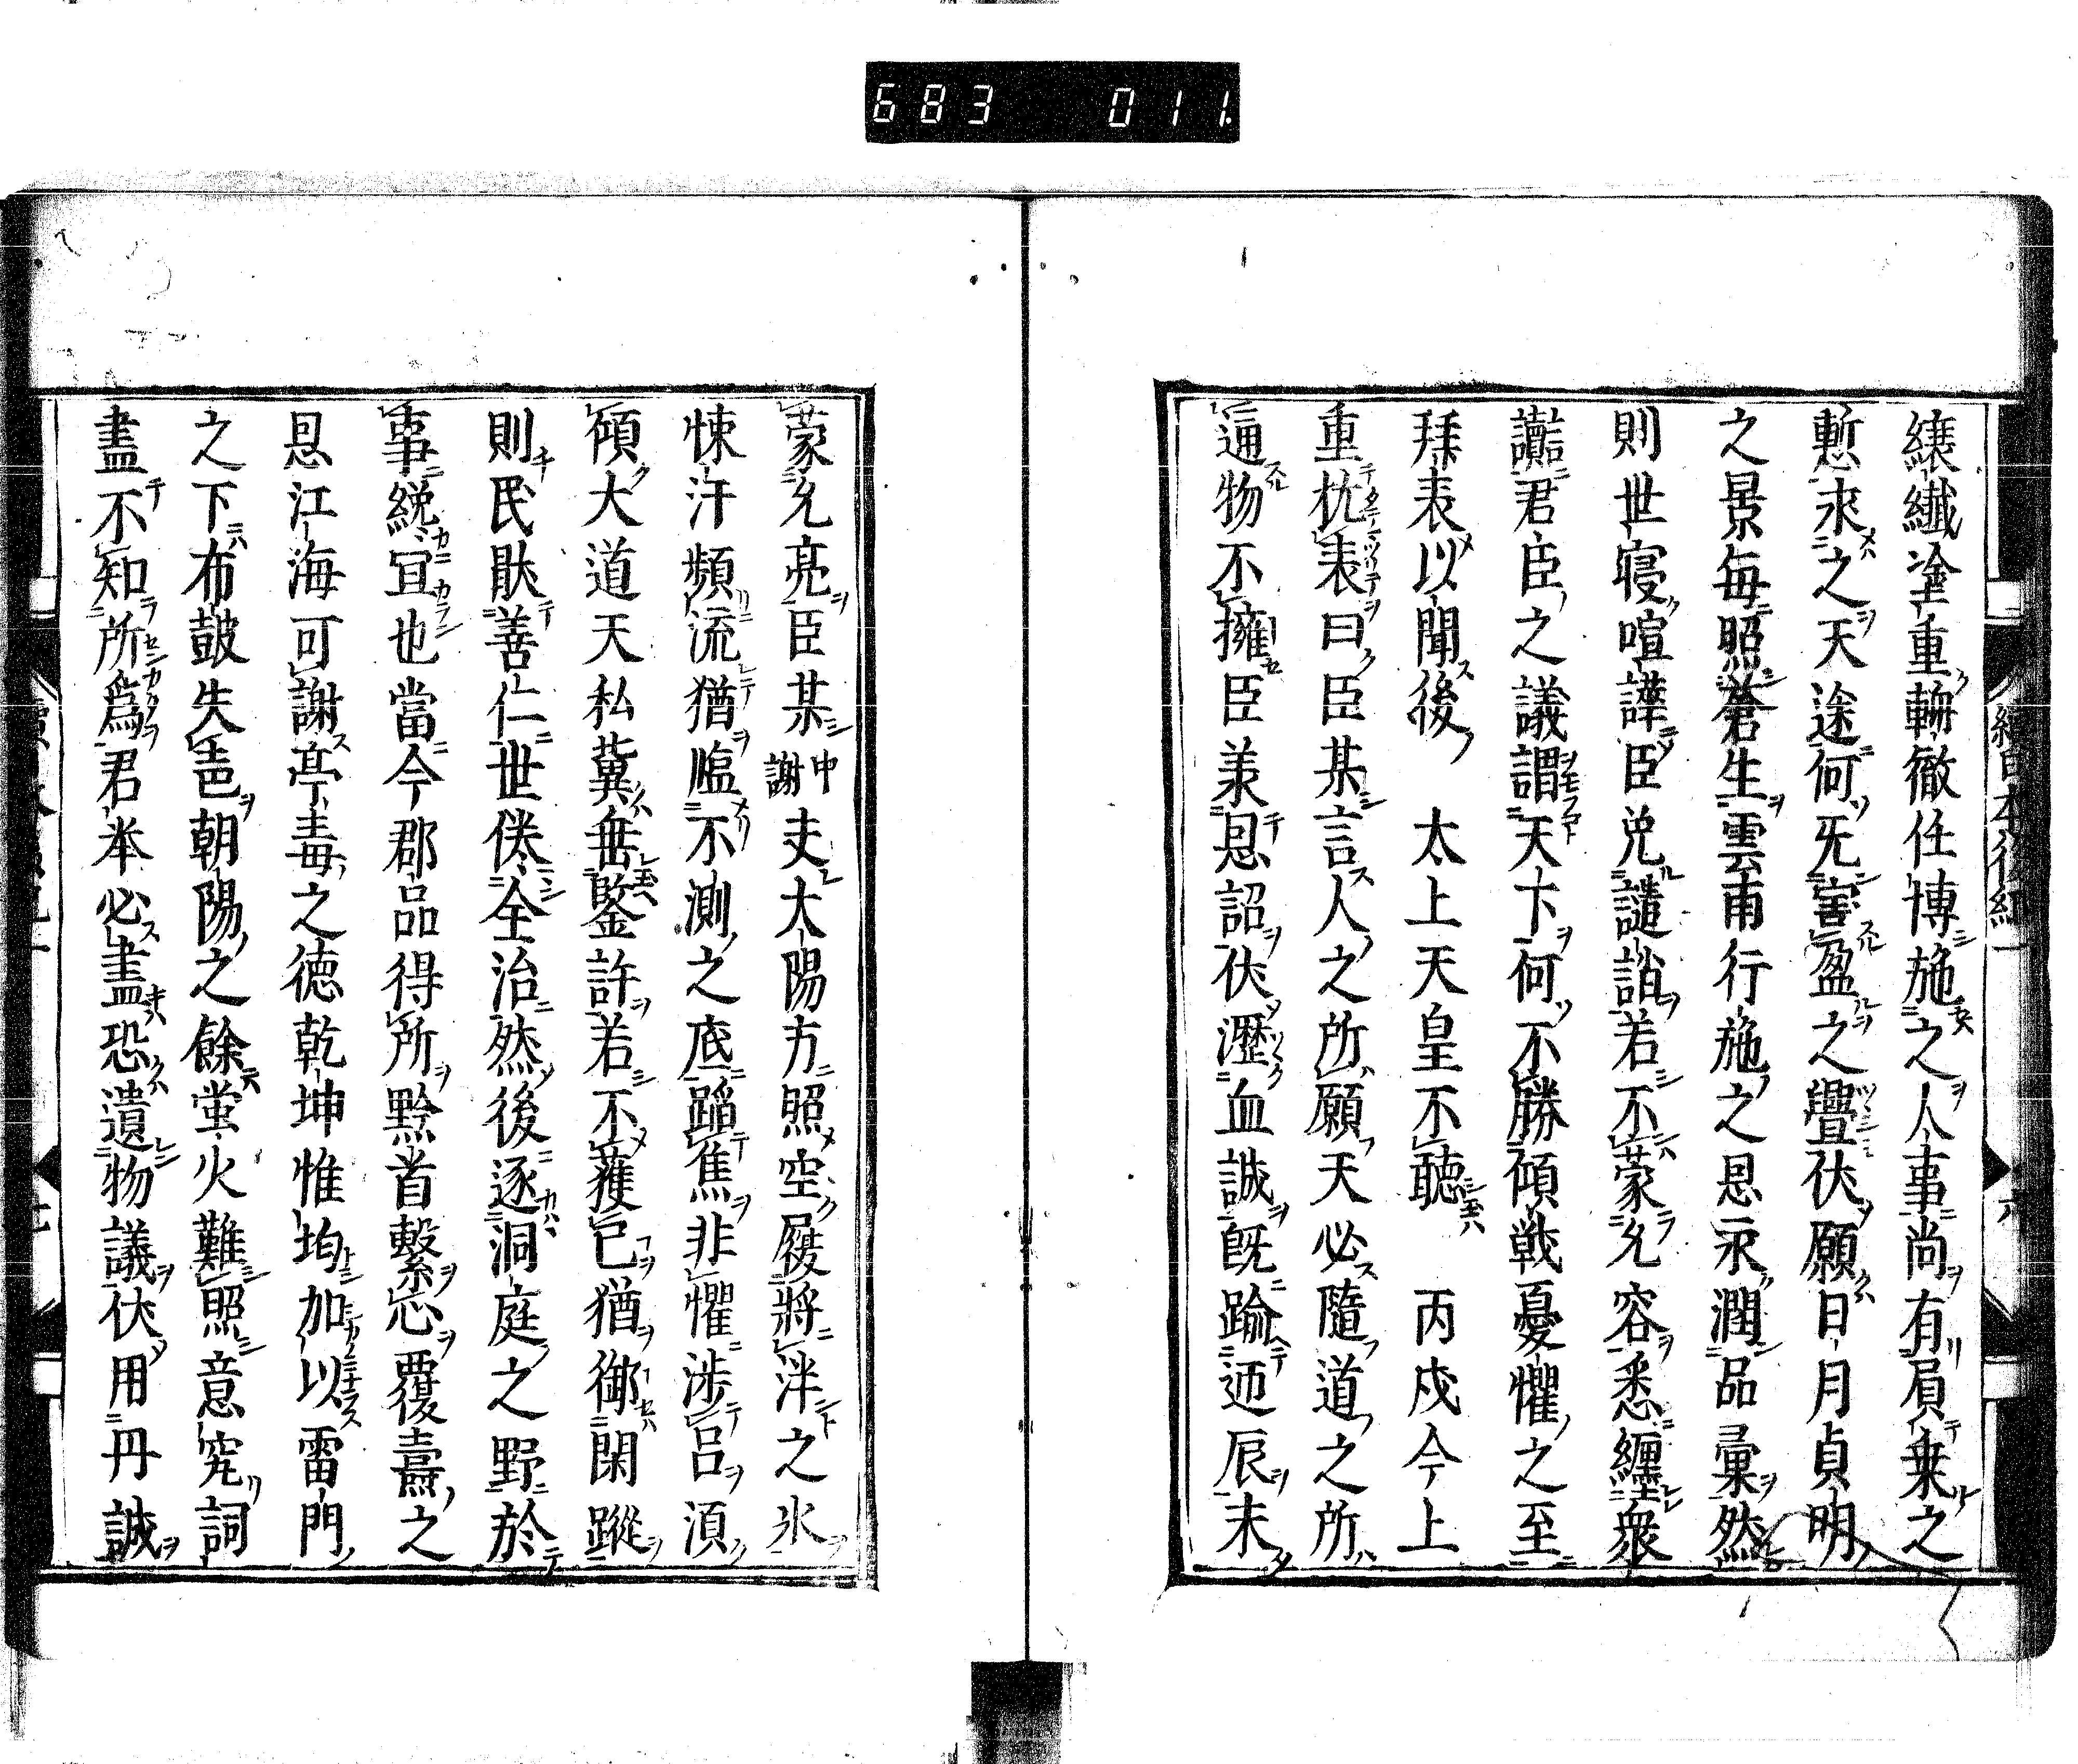 683 011
繞纖塗重輈徹任博施之人事尚有屓乗之
慙求之天途何旡害盈之舋伏願日月貞明
之景毎照蒼生雲雨行施之恩永潤品彙然
則世寝喧譁臣免譴誚若不蒙允容悉纏衆
讟君臣之議謂天下何不勝傾戦憂懼之至
拜表以聞後 太上天皇不聴 丙戌今上
重抗表曰臣某言人之所願天必隨道之所
通物不擁臣兼恩詔伏瀝血誠既踰迊辰未
蒙允亮臣某中謝夫太陽方照空履將泮之氷
悚汗頻流猶臨不測之底蹈焦非懼渉呂湏
傾大道天私冀無鑒許若不獲已猶御閑蹤
則民胅善仁世俟全治然後逐洞庭之野於
事綂宜也當今郡品得所黔首繫心覆燾之
恩江海可謝亭毒之徳乾坤惟均加以雷門
之下布鼓失音朝陽之餘蛍火難照意究詞
盡不知所爲君挙必盡恐遺物議伏用丹誠